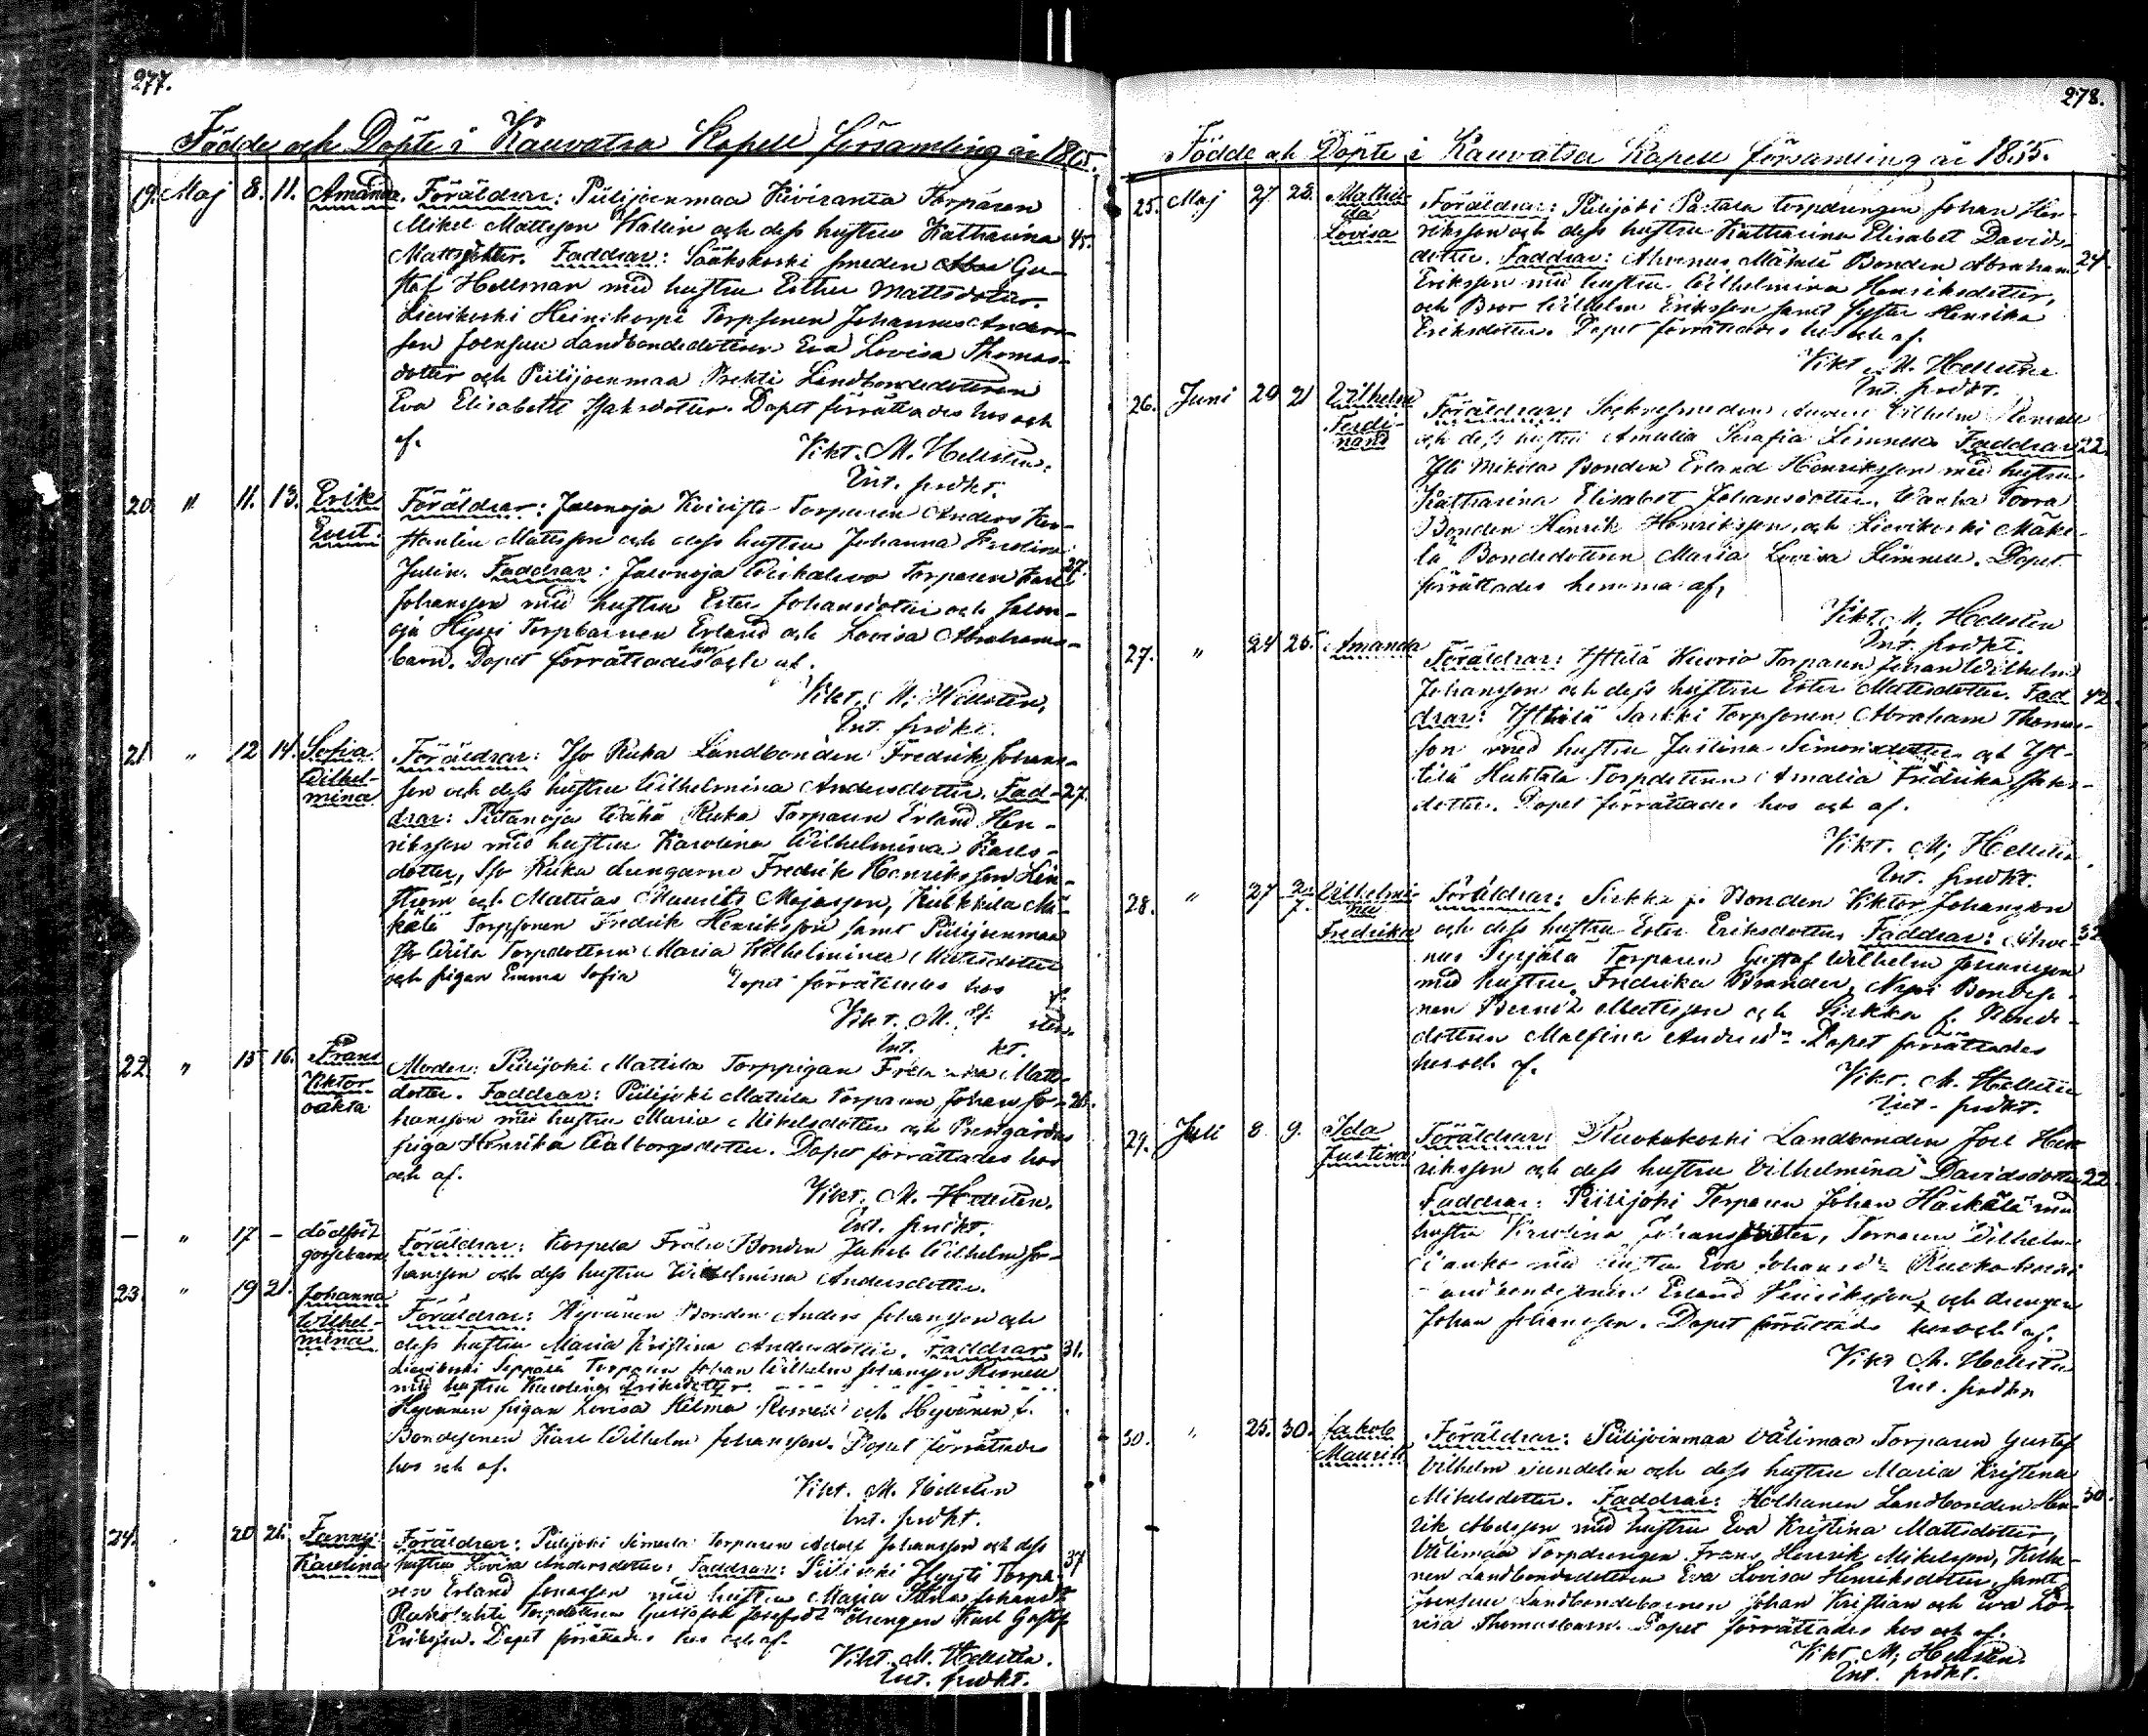 277.
Födde och Döpte i Kauvatsa Kapell församling år 1865.
19. Maj 8. 11. Amanda. Föräldrar: Piilijoenmaa Kiviranta Torparen
Mikel Mattsson Wallin och dess hustru Katharina 45.
Mattsdotter. Faddrar: Sääkskoski smeden Gu-
staf Hellman med hustru Esther Mattsdotter.
Lievikoski Heinikorpi Torpsonen Johannes Anders-
son Joensuu Landbondedottren Eva Lovisa Thomas-
dotter och Piilijoenmaa Prekti Landbondedottren
Eva Elisabeth Isaksdotter. Dopet förrättades hos och
af.
Vikt. M. Hellsten.
Int. predkt.
20. " 11. 13. Erik Föräldrar: Jalonoja Koivisto Torparen Anders
Evert. Mattsson och dess hustru Johanna Karolina
Julin. Faddrar: Jalonoja Torparen Karl 27.
Johansson med hustru Ester Johansdotter och Jalon-
oja Hyssi Torpbarnen Erland och Lovisa Abrahams-
barn. Dopet förrättades hos och af.
Vikt. M. Hellsten.
Int. predkt.
21. " 12 14. Sofia Föräldrar: Iso Ruka Landbonden Fredrik Johans-
Wilhel- son och dess hustru Wilhelmina Andersdotter. Fad- 27.
mina drar: Wähä Ruka Torparen Erland Hen-
riksson med hustru Karolina Wilhelmina Karls-
dotter, Iso Ruka drengarne Fredrik Henriksson Lin-
ström och Mattias Maurits Majasson, Kulkkila Mä-
kelä Torpsonen Fredrik Henriksson samt Piilijoenmaa
Torpdottren Maria Wilhelmina Mattsdotter
och pigan Emma Sofia Dopet förrättades hos
Vikt. M.
Int.
22. " 15 16. Frans Moder: Piilijoki Mattila Torppigan Matts-
Viktor dotter. Faddrar: Piilijoki Mattila Torparen Johan Jo- 26.
oäkta hansson med hustru Maria Mikelsdotter och Prestgårds
piga Henrika Walborgsdotter. Dopet förrättades hos
och af.
Vikt. M. Hellsten.
Int. predkt.
— " 17 — dödfödt Föräldrar: Korpela Bonden Jakob Wilhelm Jo-
gossebarn hansson och dess hustru Wilhelmina Andersdotter.
23. " 19 21. Johanna Föräldrar: Hyvänen Bonden Anders Johansson och
Wilhel- dess hustru Maria Kristina Andersdotter. Faddrar 31.
mina Lievikoski Seppälä Torparen Johan Wilhelm Johansson
med hustru Karolina Eriksdotter.
Hyvänen pigan Lovisa Helena och Hyvänen f.
Bondesonen Karl Wilhelm Johansson. Dopet förrättades
hos och af.
Vikt. M. Hellsten
Int. predkt.
24. 20 26. Fanny Föräldrar: Piilijoki Simula Torparen Adolf Johansson och dess
Karolina hustru Lovisa Andersdotter. Faddrar: Piilijoki Hyyti Torpa- 37
ren Erland Jonasson med hustru Maria Stina Johansd:r
Torpdottren Gustafva Josefsd:r drengen Karl Gustaf
Eriksson. Dopet förrättades hos och af.
Vikt. M. Hellsten.
Int. predkt.
278.
Födde och Döpte i Kauvatsa Kapell församling år 1865.
25. Maj 27 28. Mathil- Föräldrar: Piilijoki Pärtala torpdrengen Johan Hen-
da riksson och dess hustru Katharina Elisabet Davids-
Lovisa dotter. Faddrar: Ahvenus Mäkelä Bonden Abraham 24.
Eriksson med hustru Wilhelmina Henriksdotter,
och Bror Wilhelm Eriksson samt Syster Henrika
Eriksdotter. Dopet förrättades hos och af.
Vikt. M. Hellsten
Int. predkt.
26. Juni 20 21 Wilhelm Föräldrar: Socknesmeden August Wilhelm
Ferdi- och dess hustru Amalia Serafia Limnell. Faddrar 22.
nand Yli Mikola Bonden Erland Henriksson med hustru
Katharina Elisabet Johansdotter, Wanha Torra
Bonden Henrik Henriksson och Lievikoski Mäke-
lä Bondedottren Maria Lovisa Limnell. Dopet
förrättades hemma af,
Vikt. M. Hellsten
Int. predkt.
27. " 24 25. Amanda Föräldrar: Yttilä Kuorio Torparen Johan Wilhelm
Johansson och dess hustru Ester Mattsdotter. Fad- 42.
drar: Yttilä Sarkki Torpsonen Abraham Thomas-
son med hustru Justina Simonsdotter och Yt-
tilä Huhtala Torpdottren Amalia Fredrika Isaks-
dotter. Dopet förrättades hos och af.
Vikt. M. Hellsten
Int. predkt.
28. " 27 2/7. Wilhelmi- Föräldrar: Sirkka f. Bonden Viktor Johansson
na och dess hustru Ester Eriksdotter. Faddrar: Ahve- 32
Fredrika nus Torparen Gustaf Wilhelm Johansson
med hustru Fredrika Brander, Nypri Bondeso-
nen Mattsson och Sirkka f. Bonde-
dottren Malfina Andersd:r. Dopet förrättades
hos och af.
Vikt. M. Hellsten
Int. predkt.
29. Juli 8 9. Ida Föräldrar: Ruokokoski Landbonden Joel Hen-
Justina riksson och dess hustru Vilhelmina Davidsdotter 22
Faddrar: Piilijoki Torparen Johan Härkälä med
hustru Karolina Johansdotter, Torparen Wilhelm
med hustru Eva Johansd:r Ruokokoski
Landbondesonen Erland Henriksson och drengen
Johan Johansson. Dopet förrättades hos och af.
Vikt M. Hellsten
Int. predkt
30. " 25. 30. Jakob Föräldrar: Piilijoinmaa Välimaa Torparen Gustaf
Maurits Vilhelm Sundelin och dess hustru Maria Kristina
Mikelsdotter. Faddrar: Kolhanen Landbonden Hen- 30.
rik Abelsson med hustru Eva Kristina Mattsdotter,
Välimaa Torpdrengen Frans Henrik Mikelsson, Kolha-
nen Landbondedottren Eva Lovisa Henriksdotter samt
Joensuu Landbondebarnen Johan Kristian och Eva Lo-
visa Thomasbarn. Dopet förrättades hos och af.
Vikt. M. Hellsten.
Int. predkt.